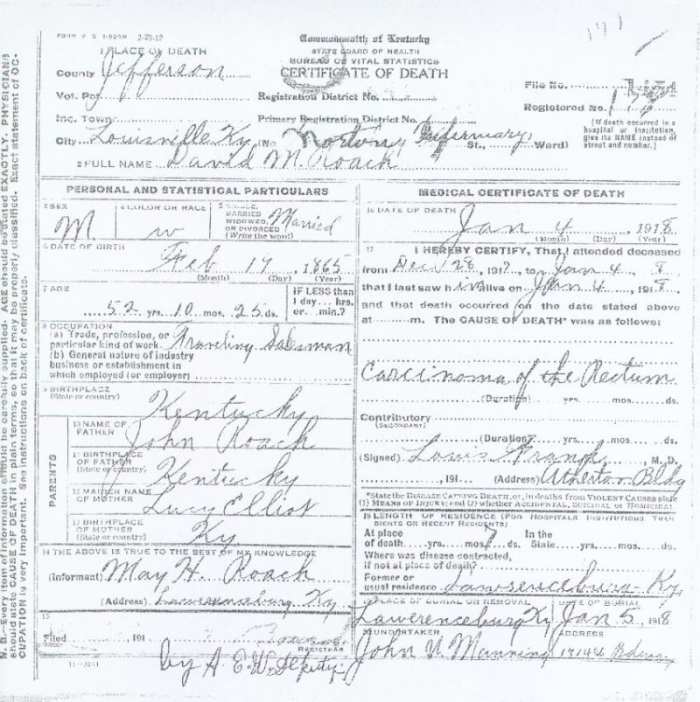 FORM V. S. 2-20-17
Commonwealth of Kentucky
STATE BOARD OF HEALTH
BUREAU OF VITAL STATISTICS
CERTIFICATE OF DEATH
1 PLACE OF DEATH
County Jefferson
Vot. Pct.
Registration District No.
File No.
Registered No.
Inc. Town
Primary Registration District No.
City Louisville Ky (No. Nortons Infirmary St., Ward)
(If death occurred in a hospital or institution, give its NAME instead of street and number.)
2 FULL NAME David M. Roach
PERSONAL AND STATISTICAL PARTICULARS
3 SEX M
4 COLOR OR RACE W
5 SINGLE, MARRIED WIDOWED, OR DIVORCED (Write the word) Married
6 DATE OF BIRTH
Feb 1865
(Month) (Day) (Year)
7 AGE
52 yrs. 10 mos. 25 ds.
IF LESS than 1 day... hrs. or... min.?
8 OCCUPATION
(a) Trade, profession, or particular kind of work Traveling Salesman
(b) General nature of industry
business or establishment in
which employed (or employer)
9 BIRTHPLACE
(State or country) Kentucky
PARENTS
10 NAME OF FATHER John Roach
11 BIRTHPLACE OF FATHER (State or country) Kentucky
12 MAIDEN NAME OF MOTHER Lucy Elliot
13 BIRTHPLACE OF MOTHER (State or country) Ky
14 THE ABOVE IS TRUE TO THE BEST OF MY KNOWLEDGE
(Informant) May H. Roach
(Address) Lawrenceburg Ky
15
Filed 191
REGISTRAR
by A. E. W. Deputy
MEDICAL CERTIFICATE OF DEATH
16 DATE OF DEATH Jan 4 1918
(Month) (Day) (Year)
17 I HEREBY CERTIFY, That I attended deceased
from Dec 28, 1917, to Jan 4 8
that I last saw him alive on Jan 4, 1918,
and that death occurred on the date stated above
at m. The CAUSE OF DEATH* was as follows:
Carcinoma of the Rectum
(Duration) yrs. mos. ds.
Contributory
(SECONDARY)
(Duration) yrs. mos. ds.
(Signed) Louis Frank, M. D.
191 (Address) Atherton Bldg
*State the DISEASE CAUSING DEATH, or, in deaths from VIOLENT CAUSES state
(1) MEANS OF INJURY; and (2) whether ACCIDENTAL, SUICIDAL or HOMICIDAL
18 LENGTH OF RESIDENCE (FOR HOSPITALS INSTITUTIONS TRANSIENTS OR RECENT RESIDENTS)
At place of death yrs. mos. 7 ds. In the State yrs. mos. ds.
Where was disease contracted,
if not at place of death?
Former or usual residence Lawrenceburg Ky.
19 PLACE OF BURIAL OR REMOVAL Lawrenceburg Ky
DATE OF BURIAL Jan 5, 1918
20 UNDERTAKER John Manning
ADDRESS
N. B.—Every item of information should be carefully supplied. AGE should be stated EXACTLY. PHYSICIANS
should state CAUSE OF DEATH in plain terms, so that it may be properly classified. Exact statement of OC-
CUPATION is very important. See instructions on back of certificate.